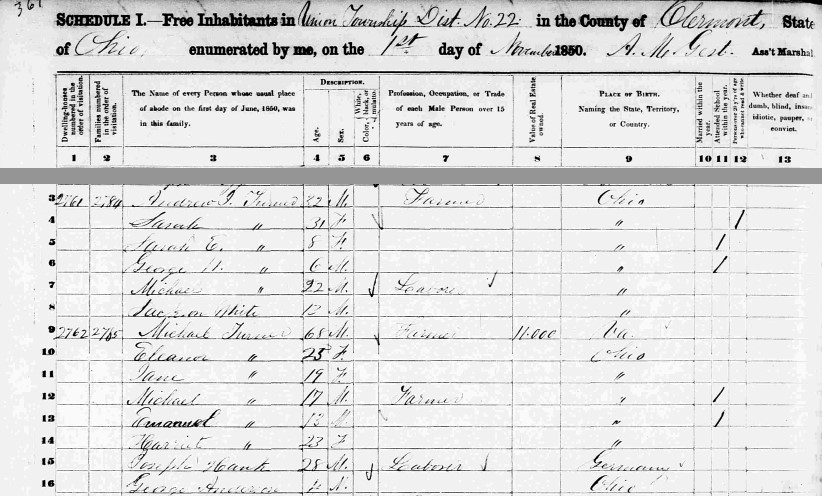 361
SCHEDULE I.—Free Inhabitants in Union Township Dist. No. 22 in the County of Clermont, State
of Ohio, enumerated by me, on the 1st day of November 1850. A. M. Gest. Ass't Marshal
Dwelling-houses numbered in the order of visitation. Families numbered in the order of visitation. The Name of every Person whose usual place of abode on the first day of June, 1850, was in this family. DESCRIPTION. Age. Sex. Color, White, black, or mulatto. Profession, Occupation, or Trade of each Male Person over 15 years of age. Value of Real Estate owned. PLACE OF BIRTH. Naming the State, Territory, or Country. Married within the year. Attended School within the year. Persons over 20 y'rs of age who cannot read & write. Whether deaf and dumb, blind, insane, idiotic, pauper, or convict.
1 2 3 4 5 6 7 8 9 10 11 12 13
3 2761 2784 Andrew J. Turner 32 M. Farmer Ohio
4 Sarah " 31 F. " /
5 Sarah E. " 8 F. " /
6 George W. " 6 M. " /
7 Michael " 22 M. Laborer "
8 Jackson White 12 M. "
9 2762 2785 Michael Turner 68 M. Farmer 11.000 Va.
10 Eleanor " 25 F. Ohio
11 Jane " 19 F. "
12 Michael " 17 M. Farmer " /
13 Emanuel " 13 M. " /
14 Harriet " 23 F "
15 Joseph Hank 28 M. Laborer Germany
16 George Anderson M. Ohio